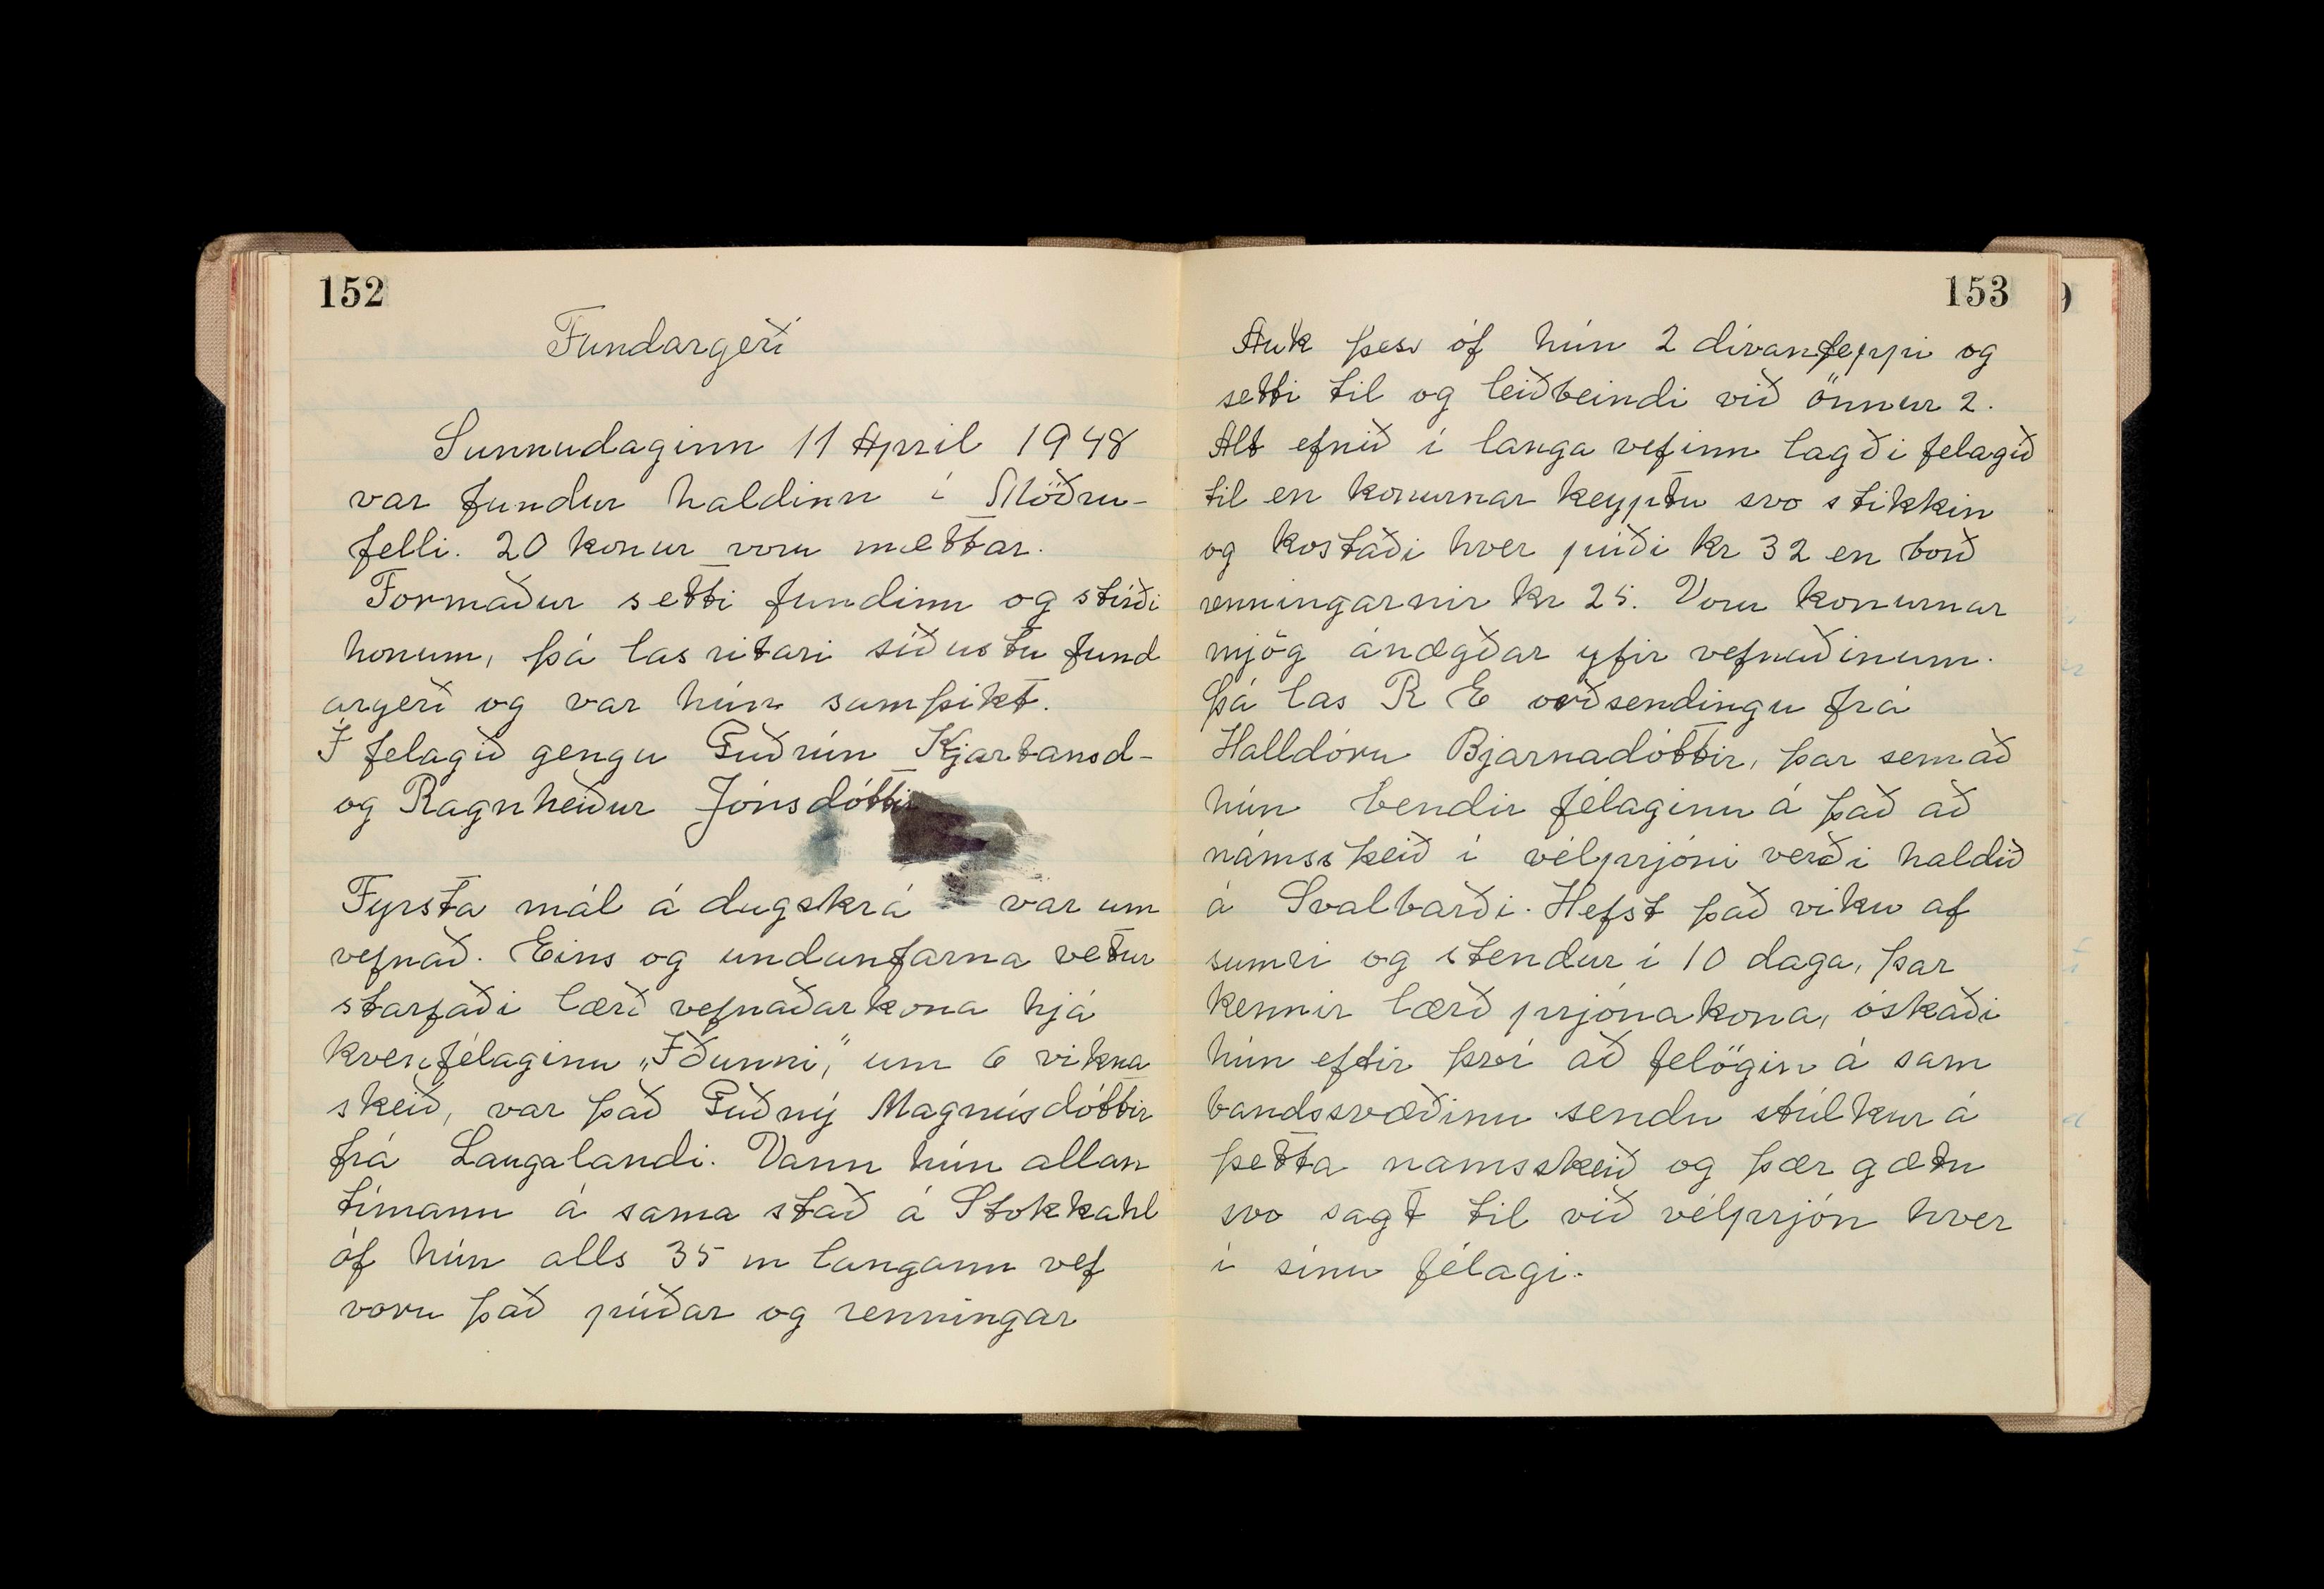 152
Fundargerð
Sunnudaginn 11 April 1948
var fundur haldinn í Möðru-
felli. 20 konur voru mættar.
Formaður setti fundinn og stírði
honum, þá las ritari síðustu fund
argerð og var hún samþikt.
Í felagið gengu Guðrún Kjartansd-
og Ragnheiður Jónsdóttir
Fyrsta mál á dagskrá var um
vefnað. Eins og undanfarna vetur
starfaði lærð vefnaðarkona hjá
kvenfélaginu „Iðunni," um 6 vikna
skeið, var það Guðný Magnúsdóttir
frá Laugalandi. Vann hún allan
tímann á sama stað á Stokkahl
óf hún alls 35 m langann vef
voru það púðar og renningar
153
Auk þess óf hún 2 dívanteppi og
setti til og leiðbeindi við önnur 2.
Alt efnið í langa vefinn lagði felagið
til en konurnar keyptu svo stikkin
og kostaði hver púði kr 32 en borð
renningarnir kr 25. Voru konurnar
mjög ánægðar yfir vefnaðinum.
Þá las R E orðsendingu frá
Halldóru Bjarnadóttir, þar sem að
hún bendir félaginu á það að
námsskeið í vélprjóni verði haldið
á Svalbarði. Hefst það viku af
sumri og stendur í 10 daga, þar
kennir lærð prjónakona, óskaði
hún eftir því að felögin á sam
bandssvæðinu sendu stúlkur á
þetta namsskeið og þær gætu
svo sagt til við vélprjón hver
í sínu félagi.